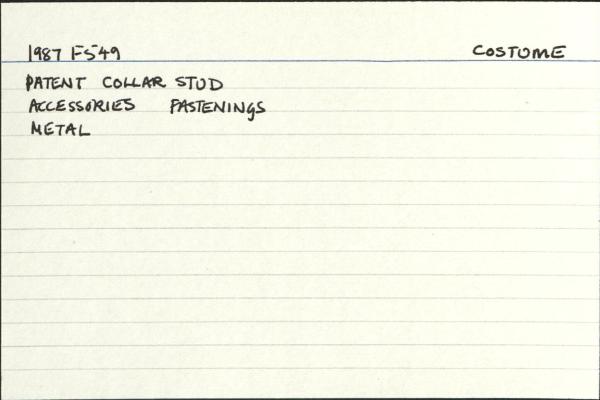 1987 F549 COSTUME
PATENT COLLAR STUD
ACCESSORIES FASTENINGS
METAL